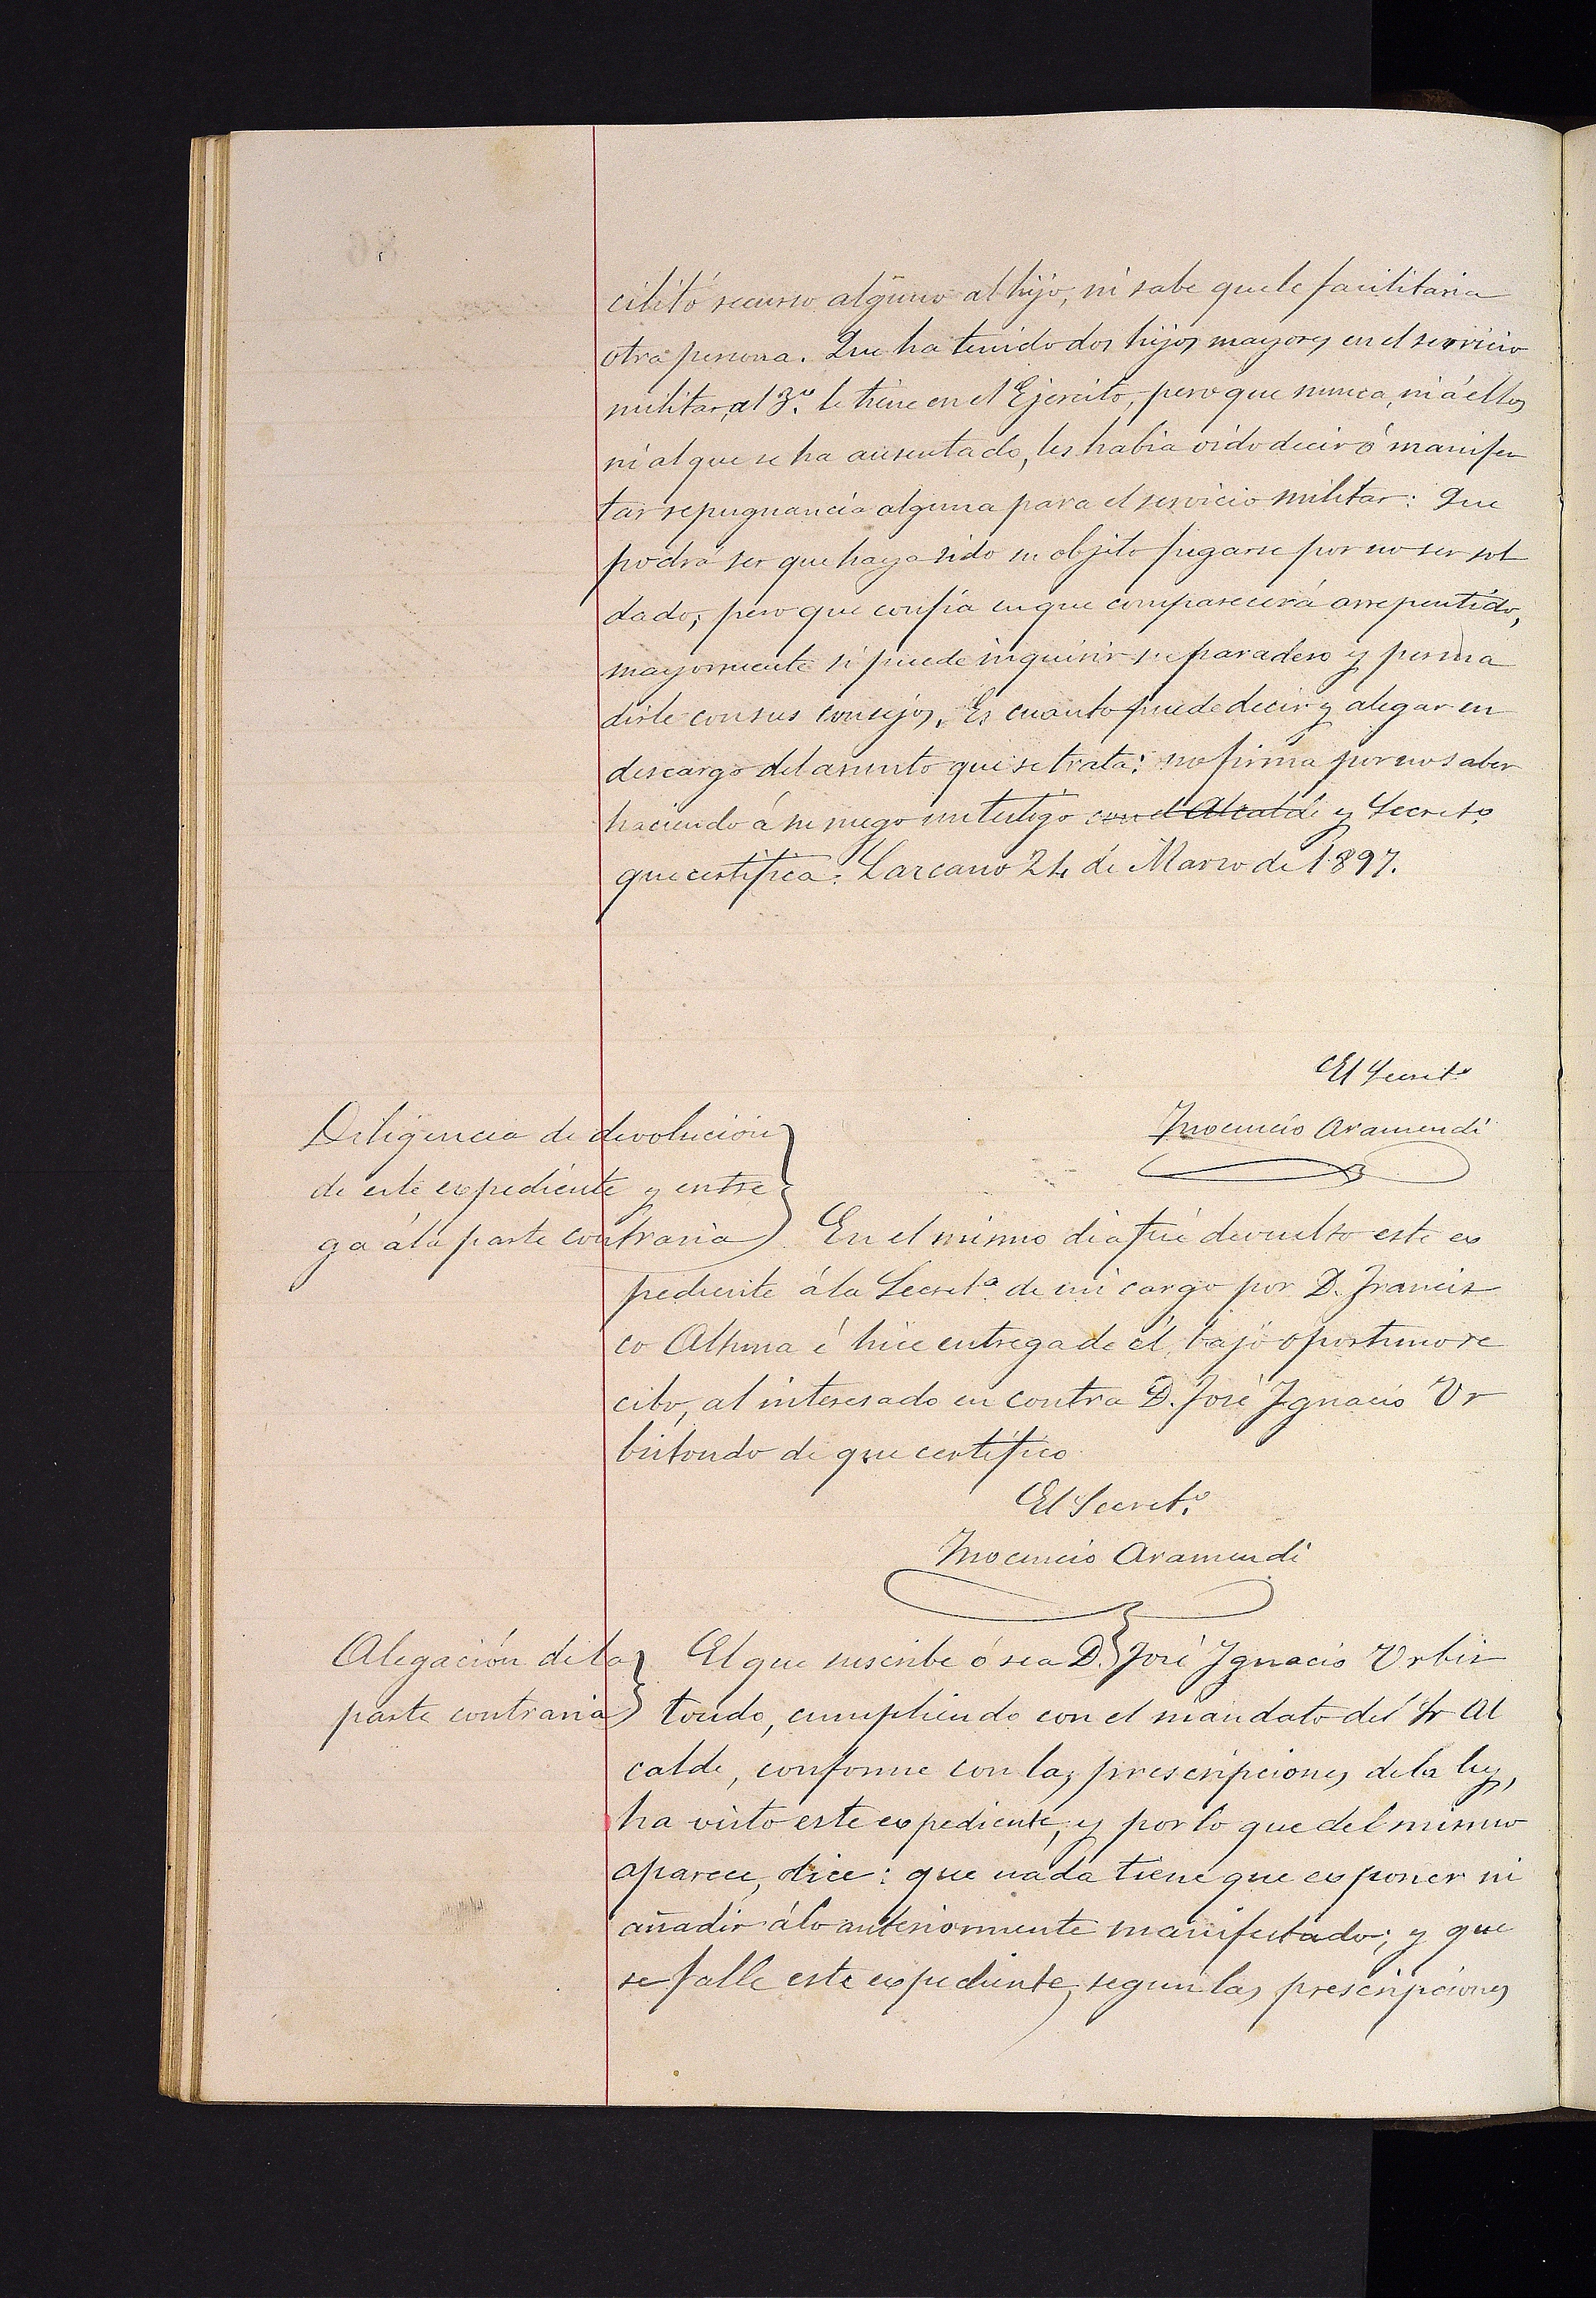 cilitó recurso alguno al hijo, ni sabe que le facilitaria
otra persona. Que ha tenido dos hijos mayores en el servicio
militar, al 3.º le tiene en el Ejercito, pero que nunca, ni á ellos
ni al que se ha ausentado, les habia oido decir ó manifes
tar repugnancia alguna para el servicio militar: Que
podrá ser que haya sido su objeto fugarse por no ser sol
dado; pero que confia en que comparecerá arrepentido,
mayormente si puede inquirir su paradero y persua
dirle con sus consejos. Es cuanto puede decir y alegar en
descargo del asunto que se trata: no firma por no saber
haciendo á su ruego un testigo con el Alcalde y Secret.º
que certifica: Lazcano 24 de Marzo de 1897.
El Secret.º
Inocencio Aramendi
Diligencia de devolución
de este expediente y entre
ga á la parte contraria
En el mismo dia fué devuelto este ex
pediente á la Secret.ª de mi cargo por D. Francis
co Altuna é hice entrega de él, bajo oportuno re
cibo, al interesado en contra D. José Ignacio Ur
bistondo de que certifico
El Secret.º
Inocencio Aramendi
Alegación de la
parte contraria
El que suscribe ó sea D. José Ignacio Urbis
tondo, cumpliendo con el mandato del Sr Al
calde, conforme con las prescripciones de la ley,
ha visto este expediente, y por lo que del mismo
aparece, dice: que nada tiene que exponer ni
añadir á lo anteriormente manifestado; y que
se falle este expediente, segun las prescripciones